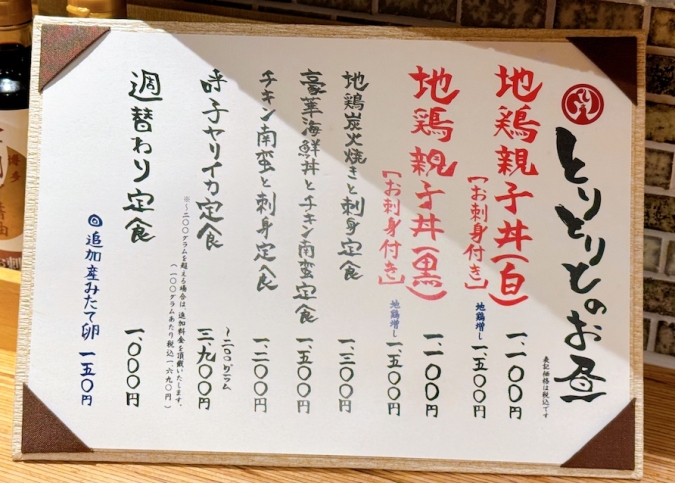 とりとりとのお昼
表記価格は税込です
地鶏親子丼(白) 一、一〇〇円
[お刺身付き] 地鶏増し 一、五〇〇円
地鶏親子丼(黒) 一、一〇〇円
[お刺身付き] 地鶏増し 一、五〇〇円
地鶏炭火焼きと刺身定食 一、三〇〇円
豪華海鮮丼とチキン南蛮定食 一、五〇〇円
チキン南蛮と刺身定食 一、二〇〇円
呼子ヤリイカ定食 〜二〇〇グラム 三、九〇〇円
※〜二〇〇グラムを超える場合は、追加料金を頂戴いたします。
(一〇〇グラムあたり税込一六九〇円)
週替わり定食 一、〇〇〇円
追加産みたて卵 一五〇円